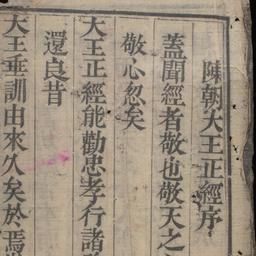 陳朝大王正經序
蓋聞經者敬也敬天之
敬心忽矣
大王正經能勸忠孝行諸
還良昔
大王垂訓由來久矣於焉